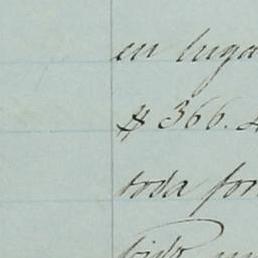 en luga
$ 366.4
toda for